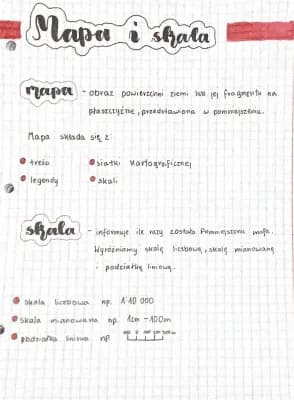 Mapa i skala
mapa - obraz powierzchni ziemi lub jej fragmentu na
płaszczyźnie, przedstawiona w pomniejszeniu.
Mapa składa się z:
• treść • siatki kartograficznej
• legendy • skali
skala - informuje ile razy została pomniejszona mapa.
Wyróżniamy skalę liczbową, skalę mianowaną
i podziałkę liniową.
• skala liczbowa np. 1:10 000
• skala mianowana np. 1cm - 100m
• podziałka liniowa np.